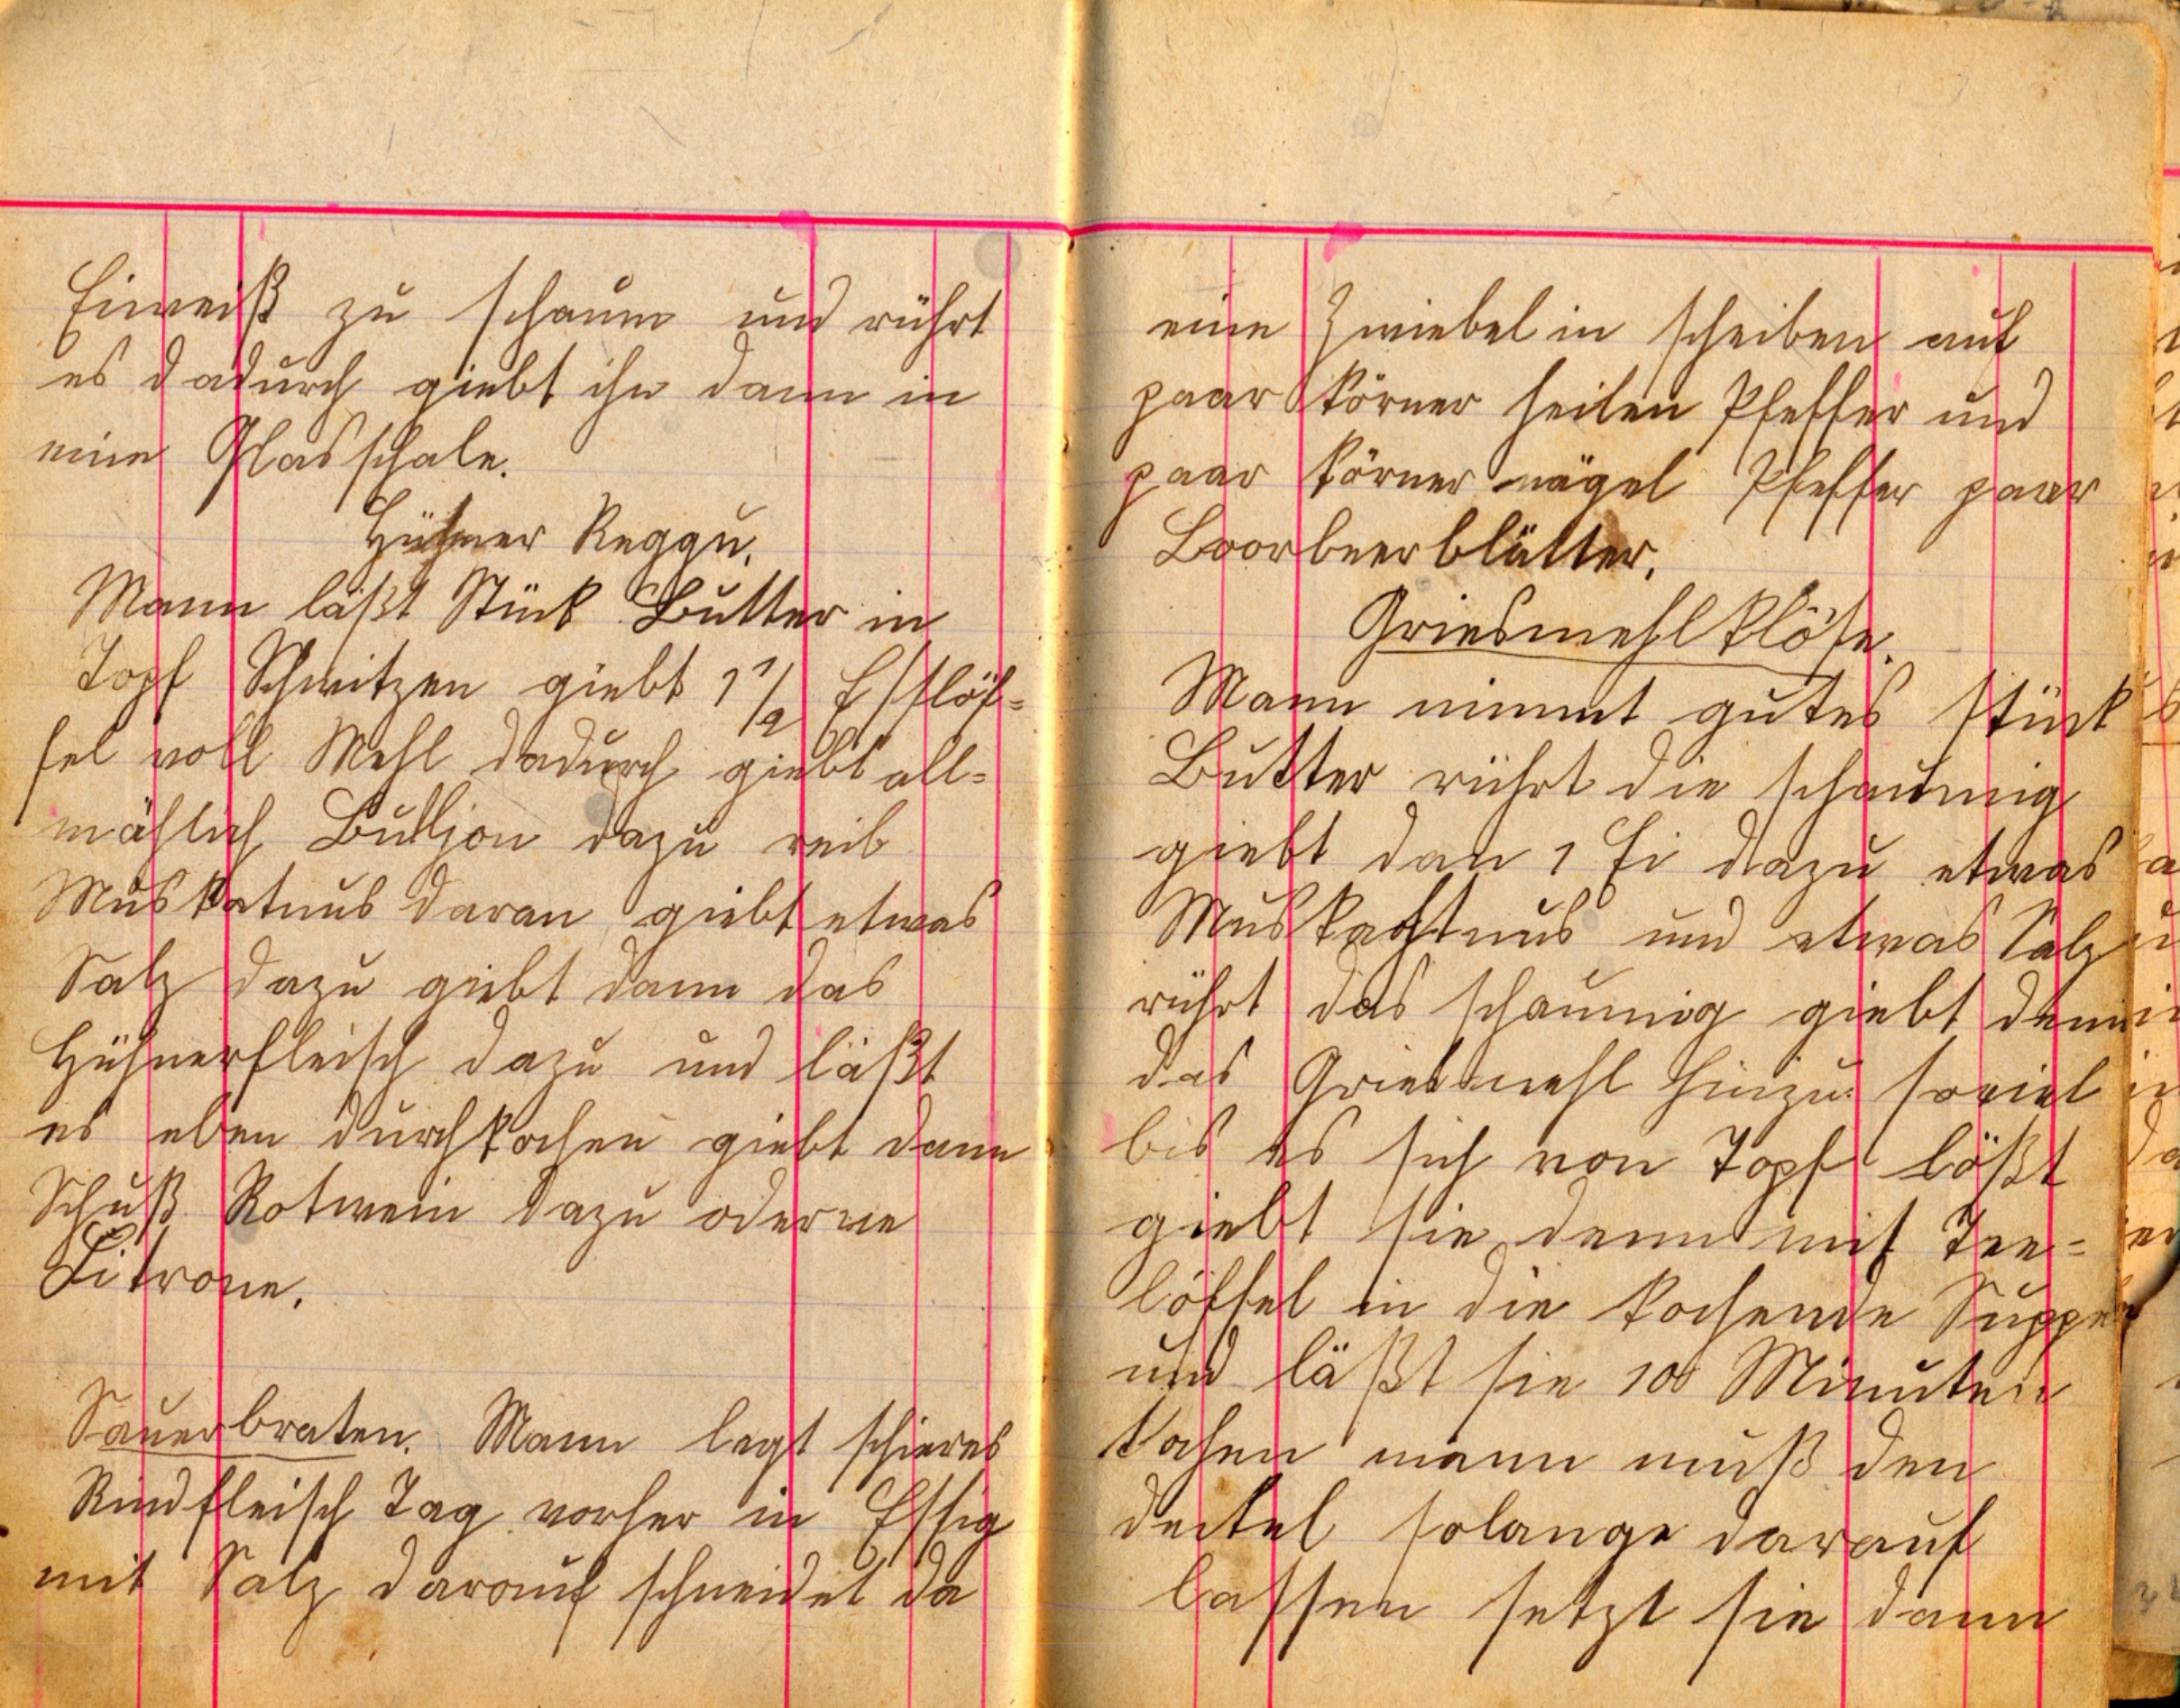 Eiweiß zu schaum und rührt
es dadurch giebt ihn dann in
eine Glasschale.
Hühner Reggu.
Mann läßt Stück Butter in
Topf Schwitzen giebt 1 1/2 Esslöf-
fel voll Mehl dadurch giebt all-
mählich Bulljon dazu reib
Muskatnus daran giebt etwas
Salz dazu giebt dann das
Hühnerfleisch dazu und läßt
es eben durchkochen giebt dann
Schuß Rotwein dazu oder ne
Zitrone.
Sauerbraten. Mann legt schieres
Rindfleisch Tag vorher in Essig
mit Salz darauf schneidet da
eine Zwiebel in scheiben auf
paar körner heilen Pfeffer und
paar körner nägel Pfeffer paar
Loorbeerblätter.
Griesmehlklöse.
Mann nimmt gutes stück
Butter rührt die schaumig
giebt dan 1 Ei dazu etwas
Muskachtnus und etwas Salz
rührt das schaumig giebt denn
das Griesmehl hinzu soviel
bis es sich von Topf lößt
giebt sie denn mit Tee-
löffel in die kochende Suppe
und läßt sie 10 Minuten
kochen mann muß den
deckel solange darauf
lassen setzt sie dann